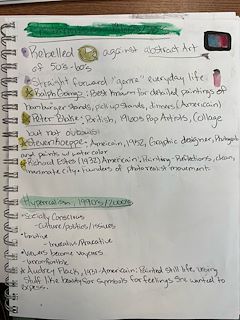 Rebelled against abstract Art
of 50s-60s
Straight forward "genre" everyday life.
Ralph Goings: Best known for detailed paintings of
hamburger stands, pick up stands, diners (American)
Peter Blake- British, 1960s Pop Artists, Collage
but not outward
American, 1952, Graphic designer, Photograph
and paints w/ water color
Richard Estes (1932) American: Painting- Reflections, clean,
inanimate city. Founders of photorealist movement.
Hyperrealism, 1990s/2000s
Socially Conscious
- culture/politics/issues
Emotive
Viewers become voyeurs
uncomfortable
Audrey Flack, 1931- American: Painted still life, using
stuff like beauty for symbols for feelings she wanted to
express.